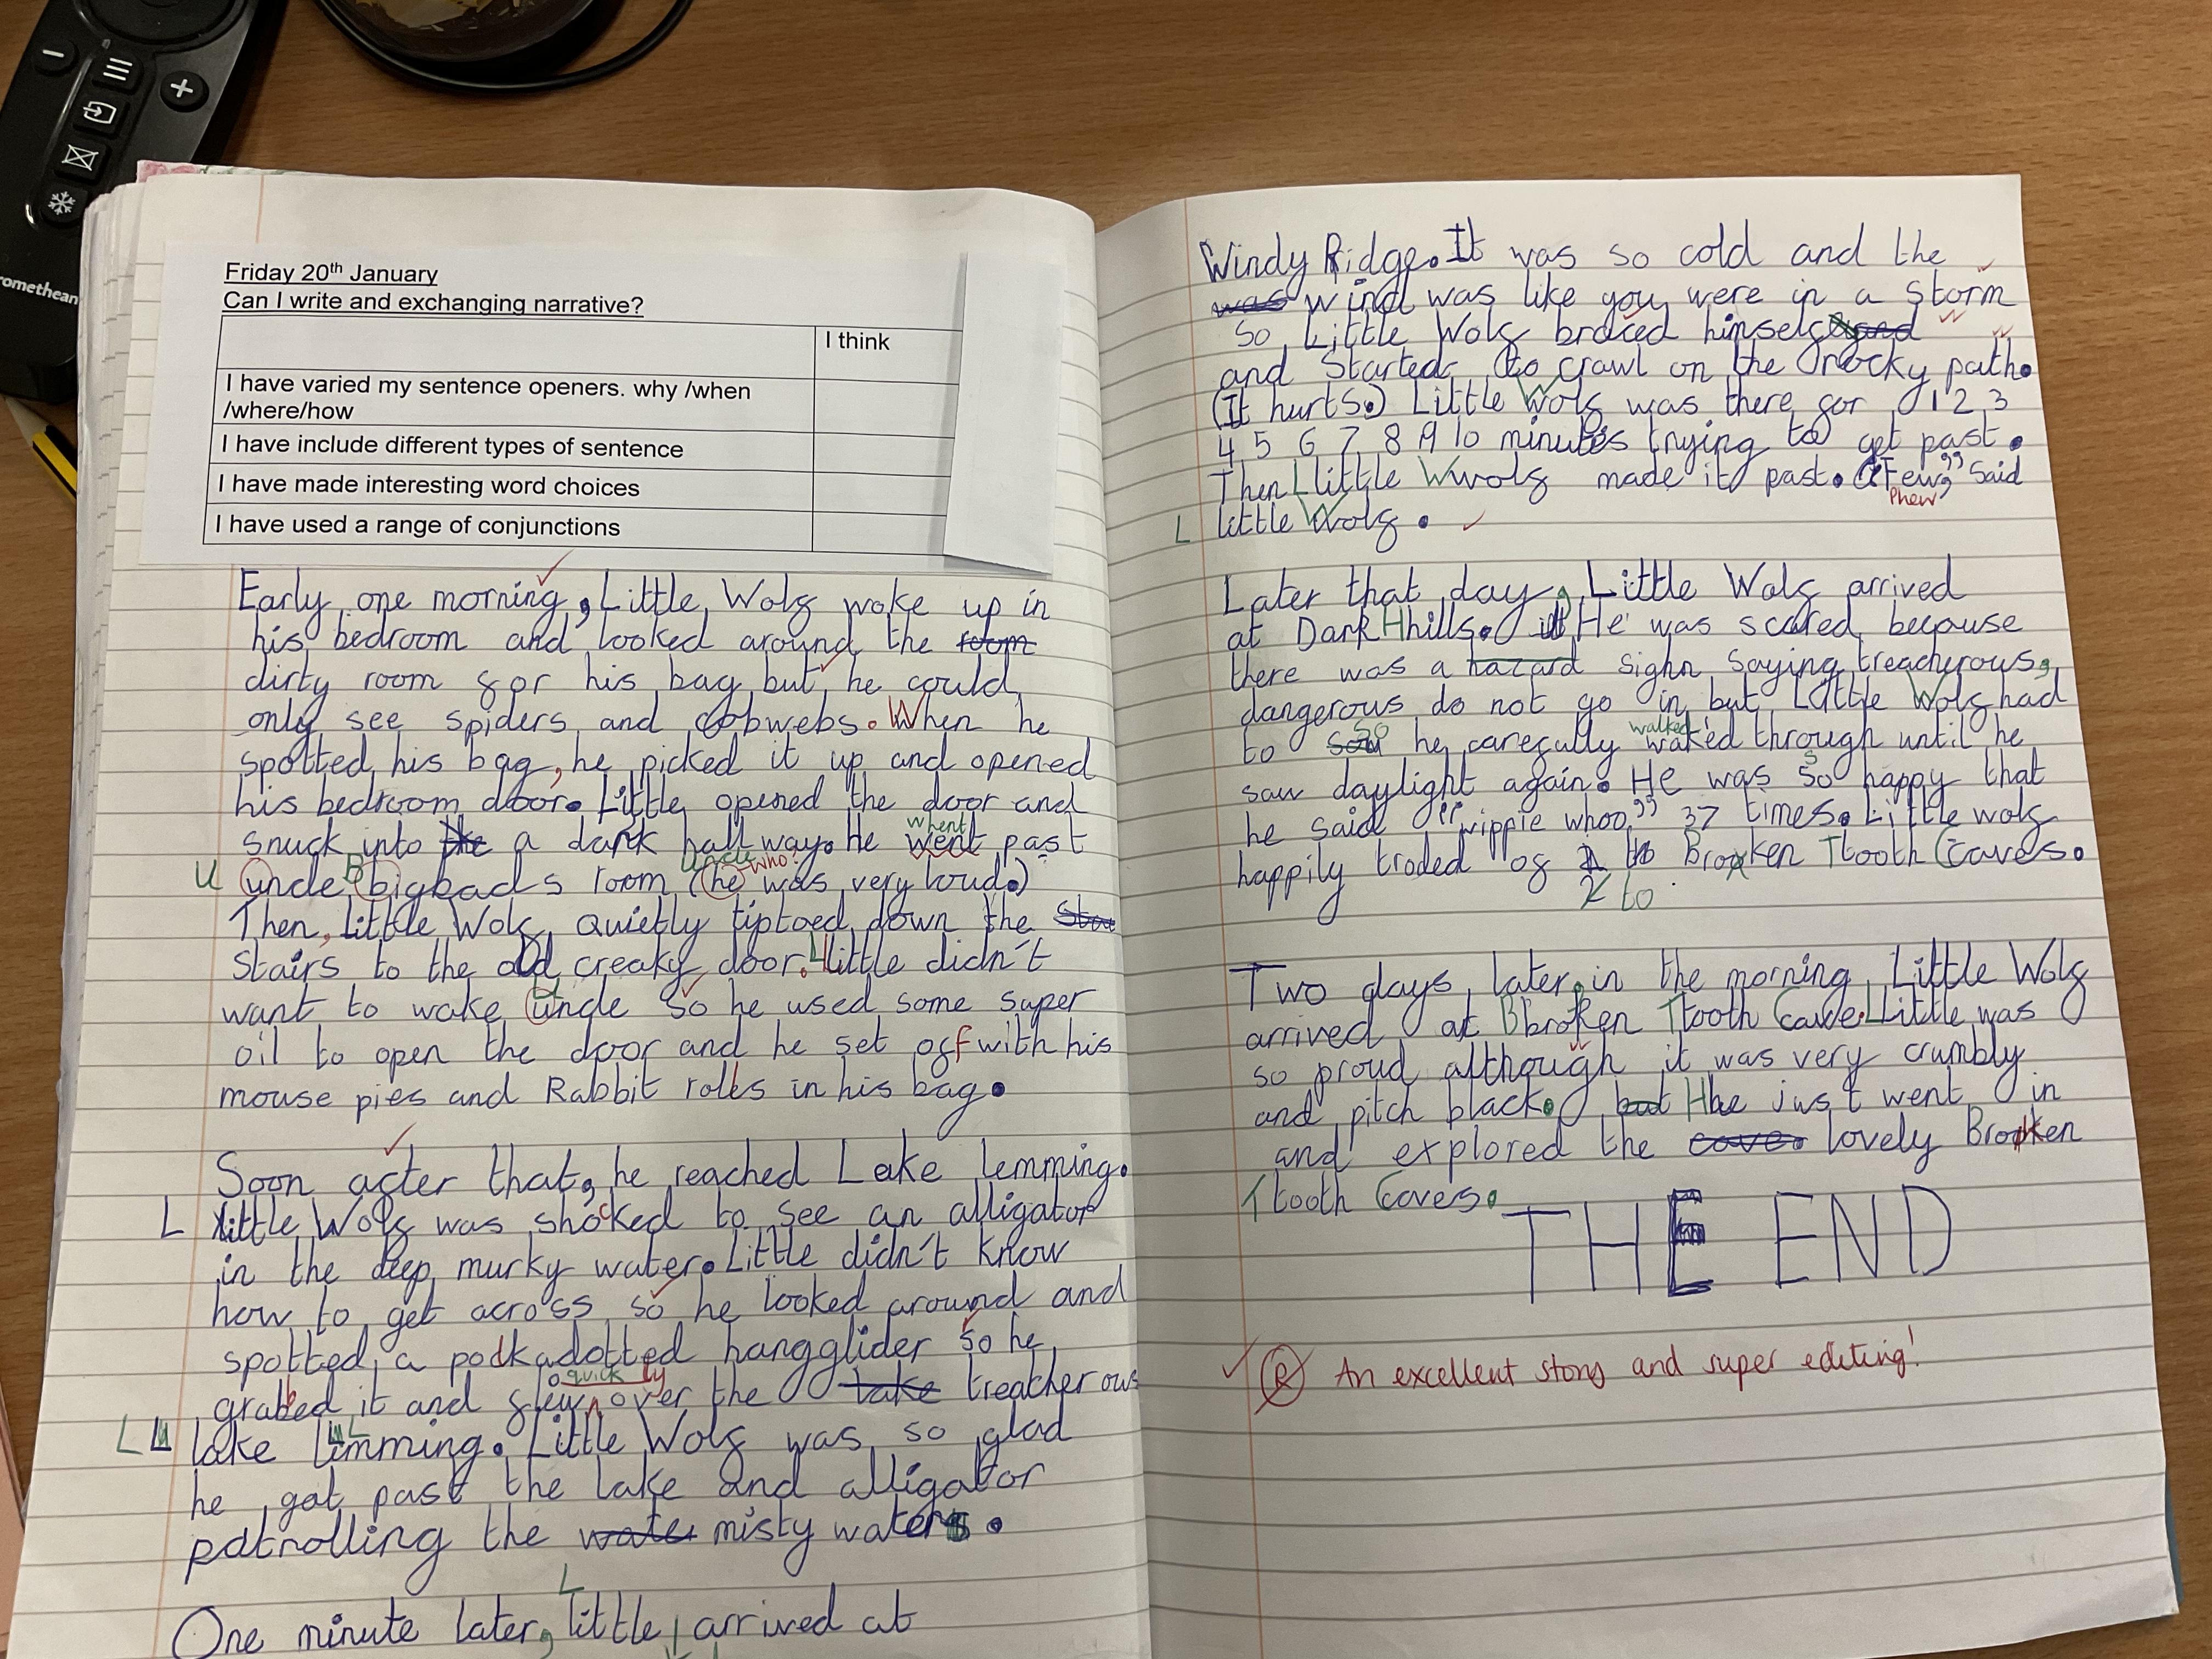 omethean
Friday 20th January
Can I write and exchanging narrative?
I think
I have varied my sentence openers. why /when
/where/how
I have include different types of sentence
I have made interesting word choices
I have used a range of conjunctions
Early one morning, Little Wolf woke up in
his bedroom and looked around the room
dirty room for his bag but he could
only see spiders and cobwebs. When he
spotted his bag, he picked it up and opened
his bedroom door. Little opened the door and
snuck into the a dark hall way. he went past
whent
U uncle Bbigbads room (he was very loud.)
uncle who?
Then, little Wolf quietly tiptoed down the
stairs to the old creaky door. Little didn't
want to wake Uncle so he used some super
oil to open the door and he set off with his
mouse pies and Rabbit rolls in his bag.
Soon after that, he reached Lake lemming.
L little Wolf was shocked to see an alligator
in the deep murky water. Little didn't know
how to get across so he looked around and
spotted a polkadotted hangglider so he
quickly
grabbed it and flew over the lake treacherous
L lake lemming. Little Wolf was so glad
he got past the lake and alligator
patrolling the water misty waters.
One minute later, little arrived at
L
Windy Ridge. It was so cold and the
was wind was like you were in a storm
so Little Wolf braced himself and
and started to crawl on the rocky path.
(It hurts.) Little Wolf was there for 1 2 3
4 5 6 7 8 9 10 minutes trying to get past.
Then Llittle Wwolf made it past. "Few," Said
Phew
L little Wolf.
Later that day, Little Wolf arrived
at Dark Hhills. it He was scared because
there was a hazard sighn saying treacherous,
dangerous do not go in but Little Wolf had
to so he carefully waked through until he
So walked
saw daylight again. He was so happy that
he said "yippie whoo," 37 times. Little wolf
happily troded of to Broken Ttooth Caves.
2 to
Two days later, in the morning Little Wolf
arrived at Bbroken Ttooth Cave. Little was
so proud although it was very crumbly
and pitch black. but Hhe just went in
and explored the cave. lovely Broken
Ttooth Caves.
THE END
R An excellent story and super editing!